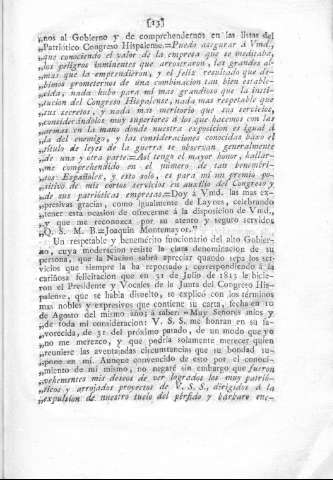 [13]
„nos al Gobierno y de comprehendernos en las listas del
„Patriótico Congreso Hispalense.=Puedo asegurar á Vmd.,
„que conociendo el valor de la empresa que se meditaba,
„los peligros inminentes que arrostraron, las grandes al-
„mas que la emprendieron, y el feliz resultado que de-
„bimos prometernos de una combinacion tan bien estable-
„cida; nada hubo para mí mas grandioso que la insti-
„tucion del Congreso Hispalense, nada mas respetable que
„sus secretos, y nada mas meritorio que sus servicios,
„considerándolos muy superiores á los que hacemos con las
„armas en la mano donde nuestra exposicion es igual á
„la del enemigo, y las consideraciones conocidas baxo el
„título de leyes de la guerra se observan generalmente
„de una y otra parte.=Así tengo el mayor honor, hallar-
„me comprehendido en el número de tan beneméri-
„tos Españoles, y esto solo, es para mí un premio po-
„sitivo de mis cortos servicios en auxilio del Congreso y
„de sus patrióticas empresas.=Doy á Vmd. las mas ex-
„presivas gracias, como igualmente de Laynes, celebrando
„tener esta ocasion de ofrecerme á la disposicion de Vmd.,
„y que me reconozca por su atento y seguro servidor
„Q. S. M. B.=Joaquin Montemayor."
Un respetable y benemérito funcionario del alto Gobier-
no, cuya moderacion resiste la clara denominacion de su
persona, que la Nacion sabrá apreciar quando sepa los ser-
vicios que siempre la ha reportado; correspondiendo á la
cariñosa felicitacion que en 31 de Julio de 1813 le hicie-
ron el Presidente y Vocales de la Junta del Congreso His-
palense, que se habia disuelto, se explicó con los términos
mas nobles y expresivos que contiene su carta, fecha en 10
de Agosto del mismo año; á saber: „Muy Señores mios y
„de toda mi consideracion: V. S. S. me honran en su fa-
„vorecida, de 31 del próximo pasado, de un modo que yo
„no me merezco, y que podria solamente merecer quien
„reuniere las aventajadas circunstancias que su bondad su-
„pone en mí. Aunque convencido de esto por el conoci-
„miento de mí mismo, no negaré sin embargo que fueron
„vehementes mis deseos de ver logrados los muy patrió-
„ticos y arrojados proyectos de V. S. S., dirigidos á la
„expulsion de nuestro suelo del pérfido y bárbaro ene-